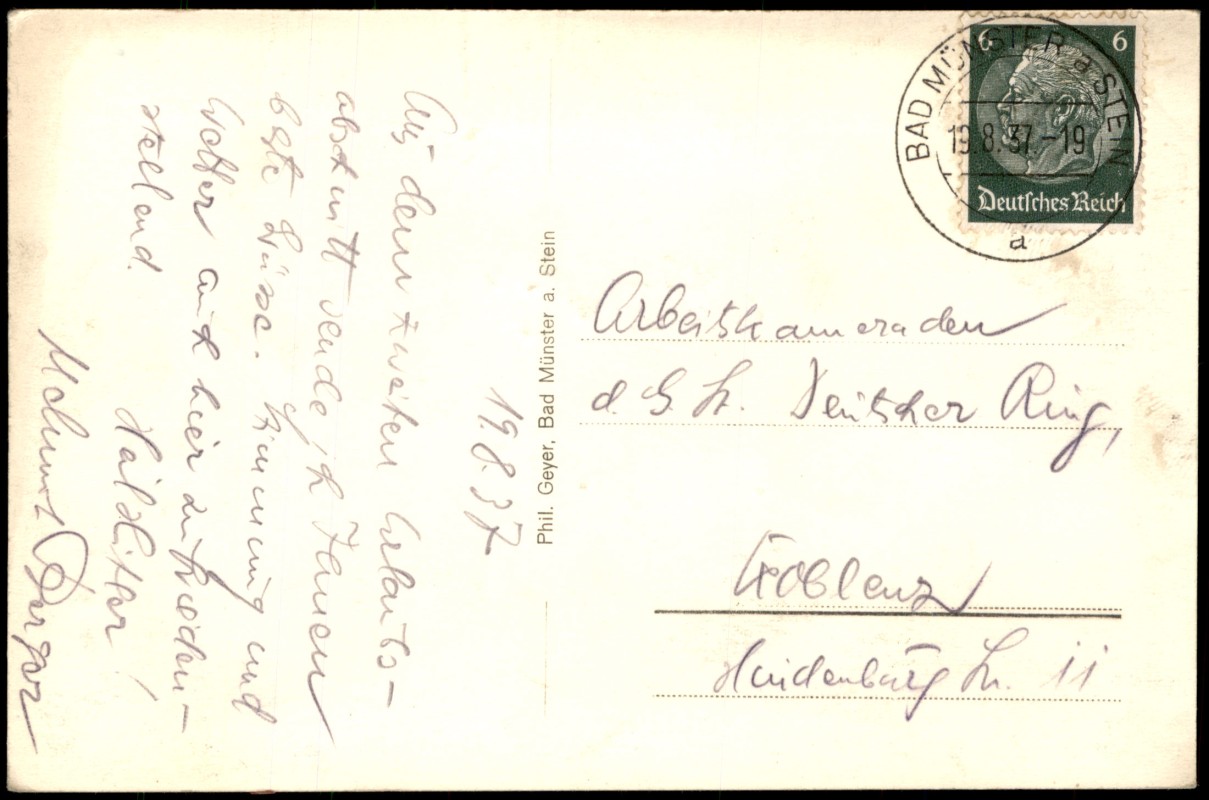 19.8.37
Aus dem zweiten Urlaubs-
abschnitt sende ich Ihnen
beste Grüsse. Stimmung und
Wetter auch hier zufrieden-
stellend.
Heil Hitler!
Phil. Geyer, Bad Münster a. Stein
6 6
Deutsches Reich
BAD MÜNSTER a STEIN
19.8.37.-19
a
Arbeitskameraden
d. G. Deutscher Ring,
Koblenz
Hindenburg 11